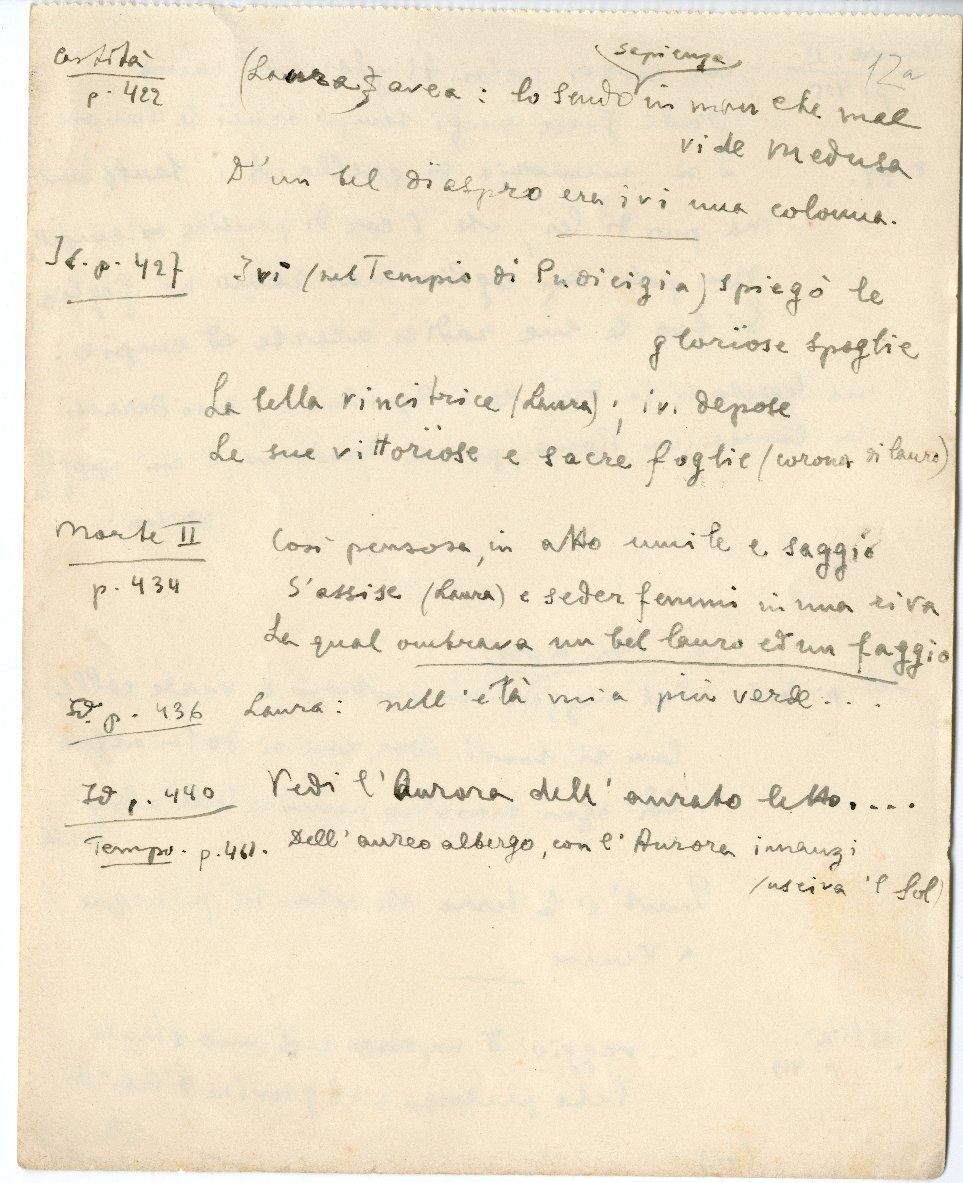 sapienza
12a
Castità
p. 422
(Laura) avea: lo scudo in man che mal
vide Medusa
D'un bel diaspro era ivi una colonna.
Id. p. 427 Ivi (nel Tempio di Pudicizia) spiegò le
glorïose spoglie
La bella vincitrice (Laura); ivi depose
Le sue vittorïose e sacre foglie (corona di lauro)
Morte II
p. 434
Così pensosa, in atto umile e saggio
S'assise (Laura) e seder femmi in una riva
La qual ombrava un bel lauro ed un faggio
Id. p. 436 Laura: nell'età mia più verde...
Id p. 440 Vedi l'Aurora dell'aurato letto....
Tempo. p. 461. Dell'aureo albergo, con l'Aurora innanzi
(usciva 'l Sol)